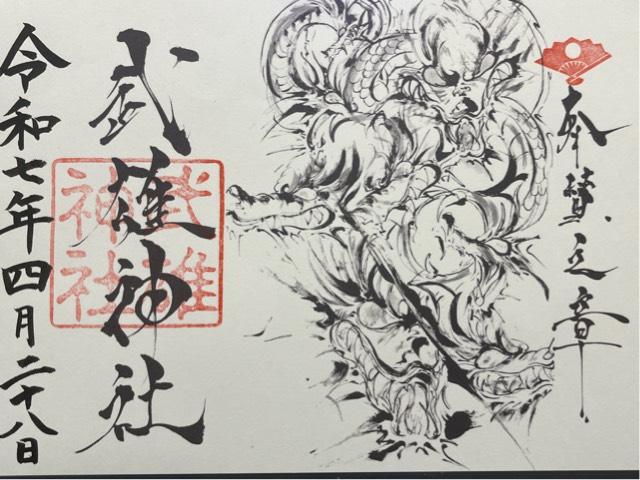 奉賛之章
武雄神社
武雄
神社
令和七年四月二十八日